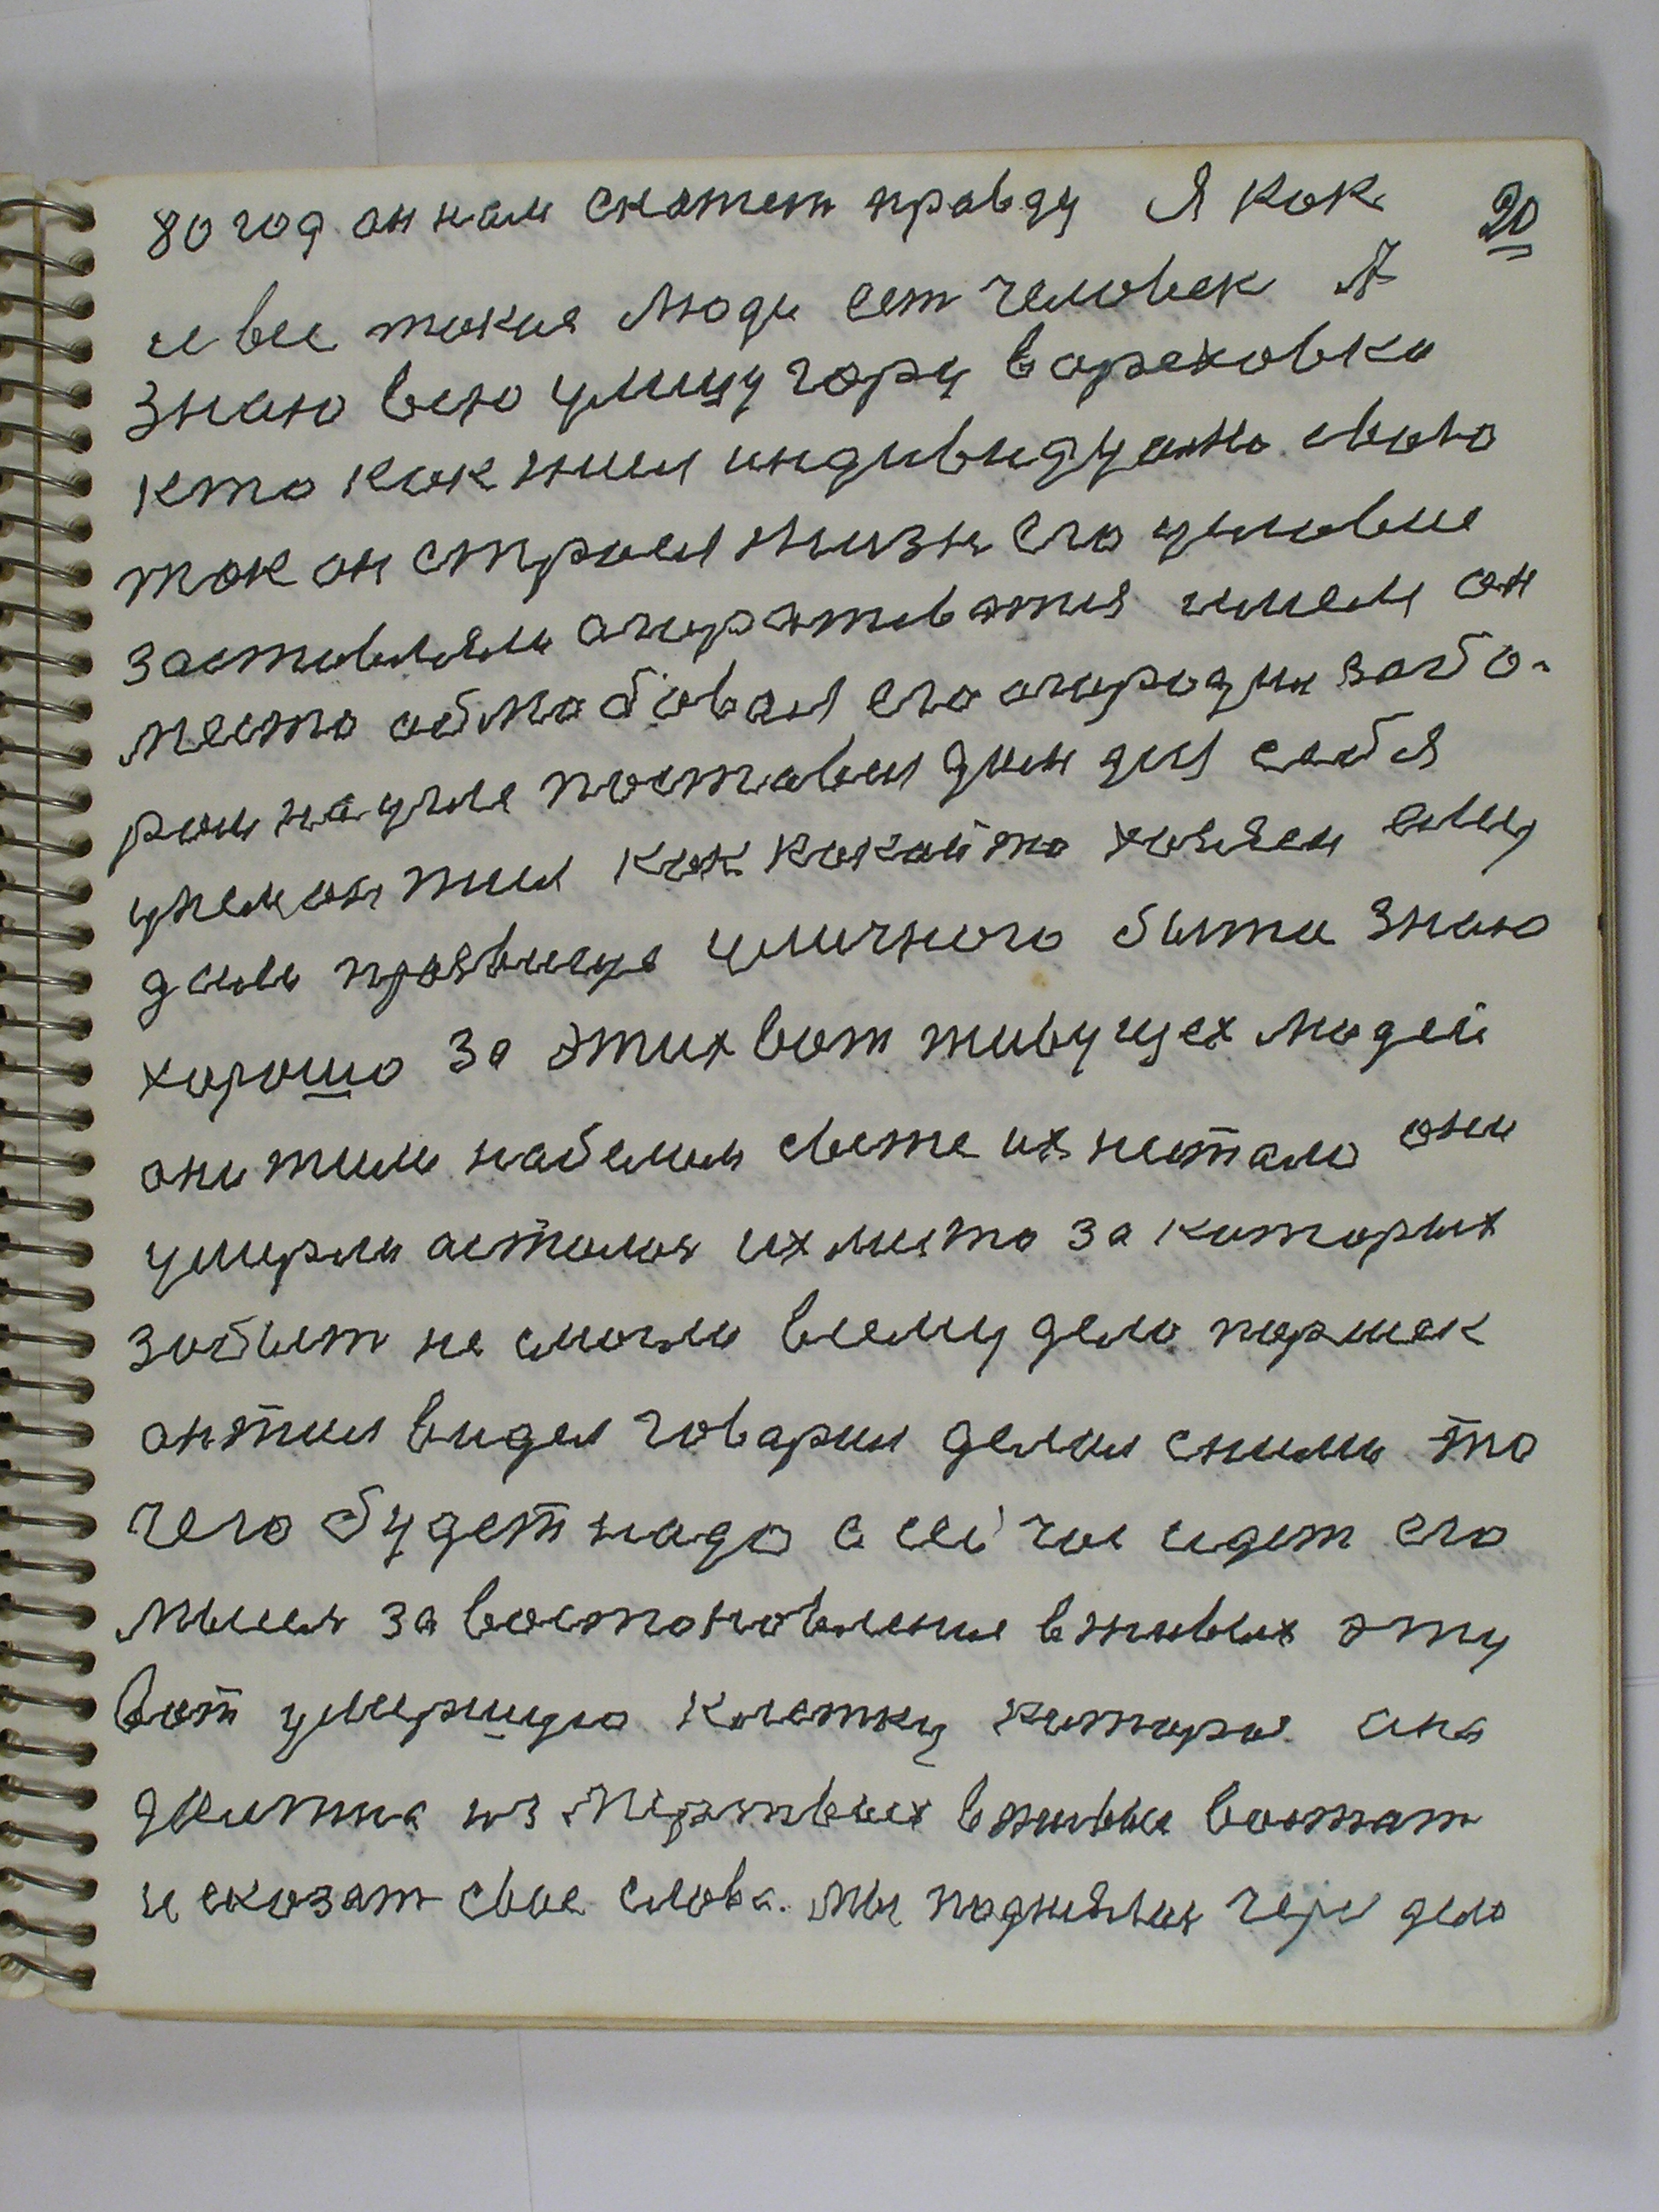 80 год он нам скажет правду Я как 20
и все такие люди ест человек Я
знаю всю улицу гору в ореховки
кто как жил индивидуално свою
так он строил жизн его условие
заставляли огиражтватия имел он
место облюбовал его огородил забо-
ром на угле поставил дом для себя
как какойто хозяен ему
дали прозвище уличного быта знаю
хорошо за этих вот живущех людей
они жили на белом свете их нестало они
умерли осталос их место за которых
забыт не смогли всему дело паршек
он жил видел говарил делал с ними то
чего будет надо а сейчас идет его
мысл за востоновление в живых эту
вот умершую клетку которые она
должна из мертвых в живые востат
и сказат свое слова. Мы поднялис через дело